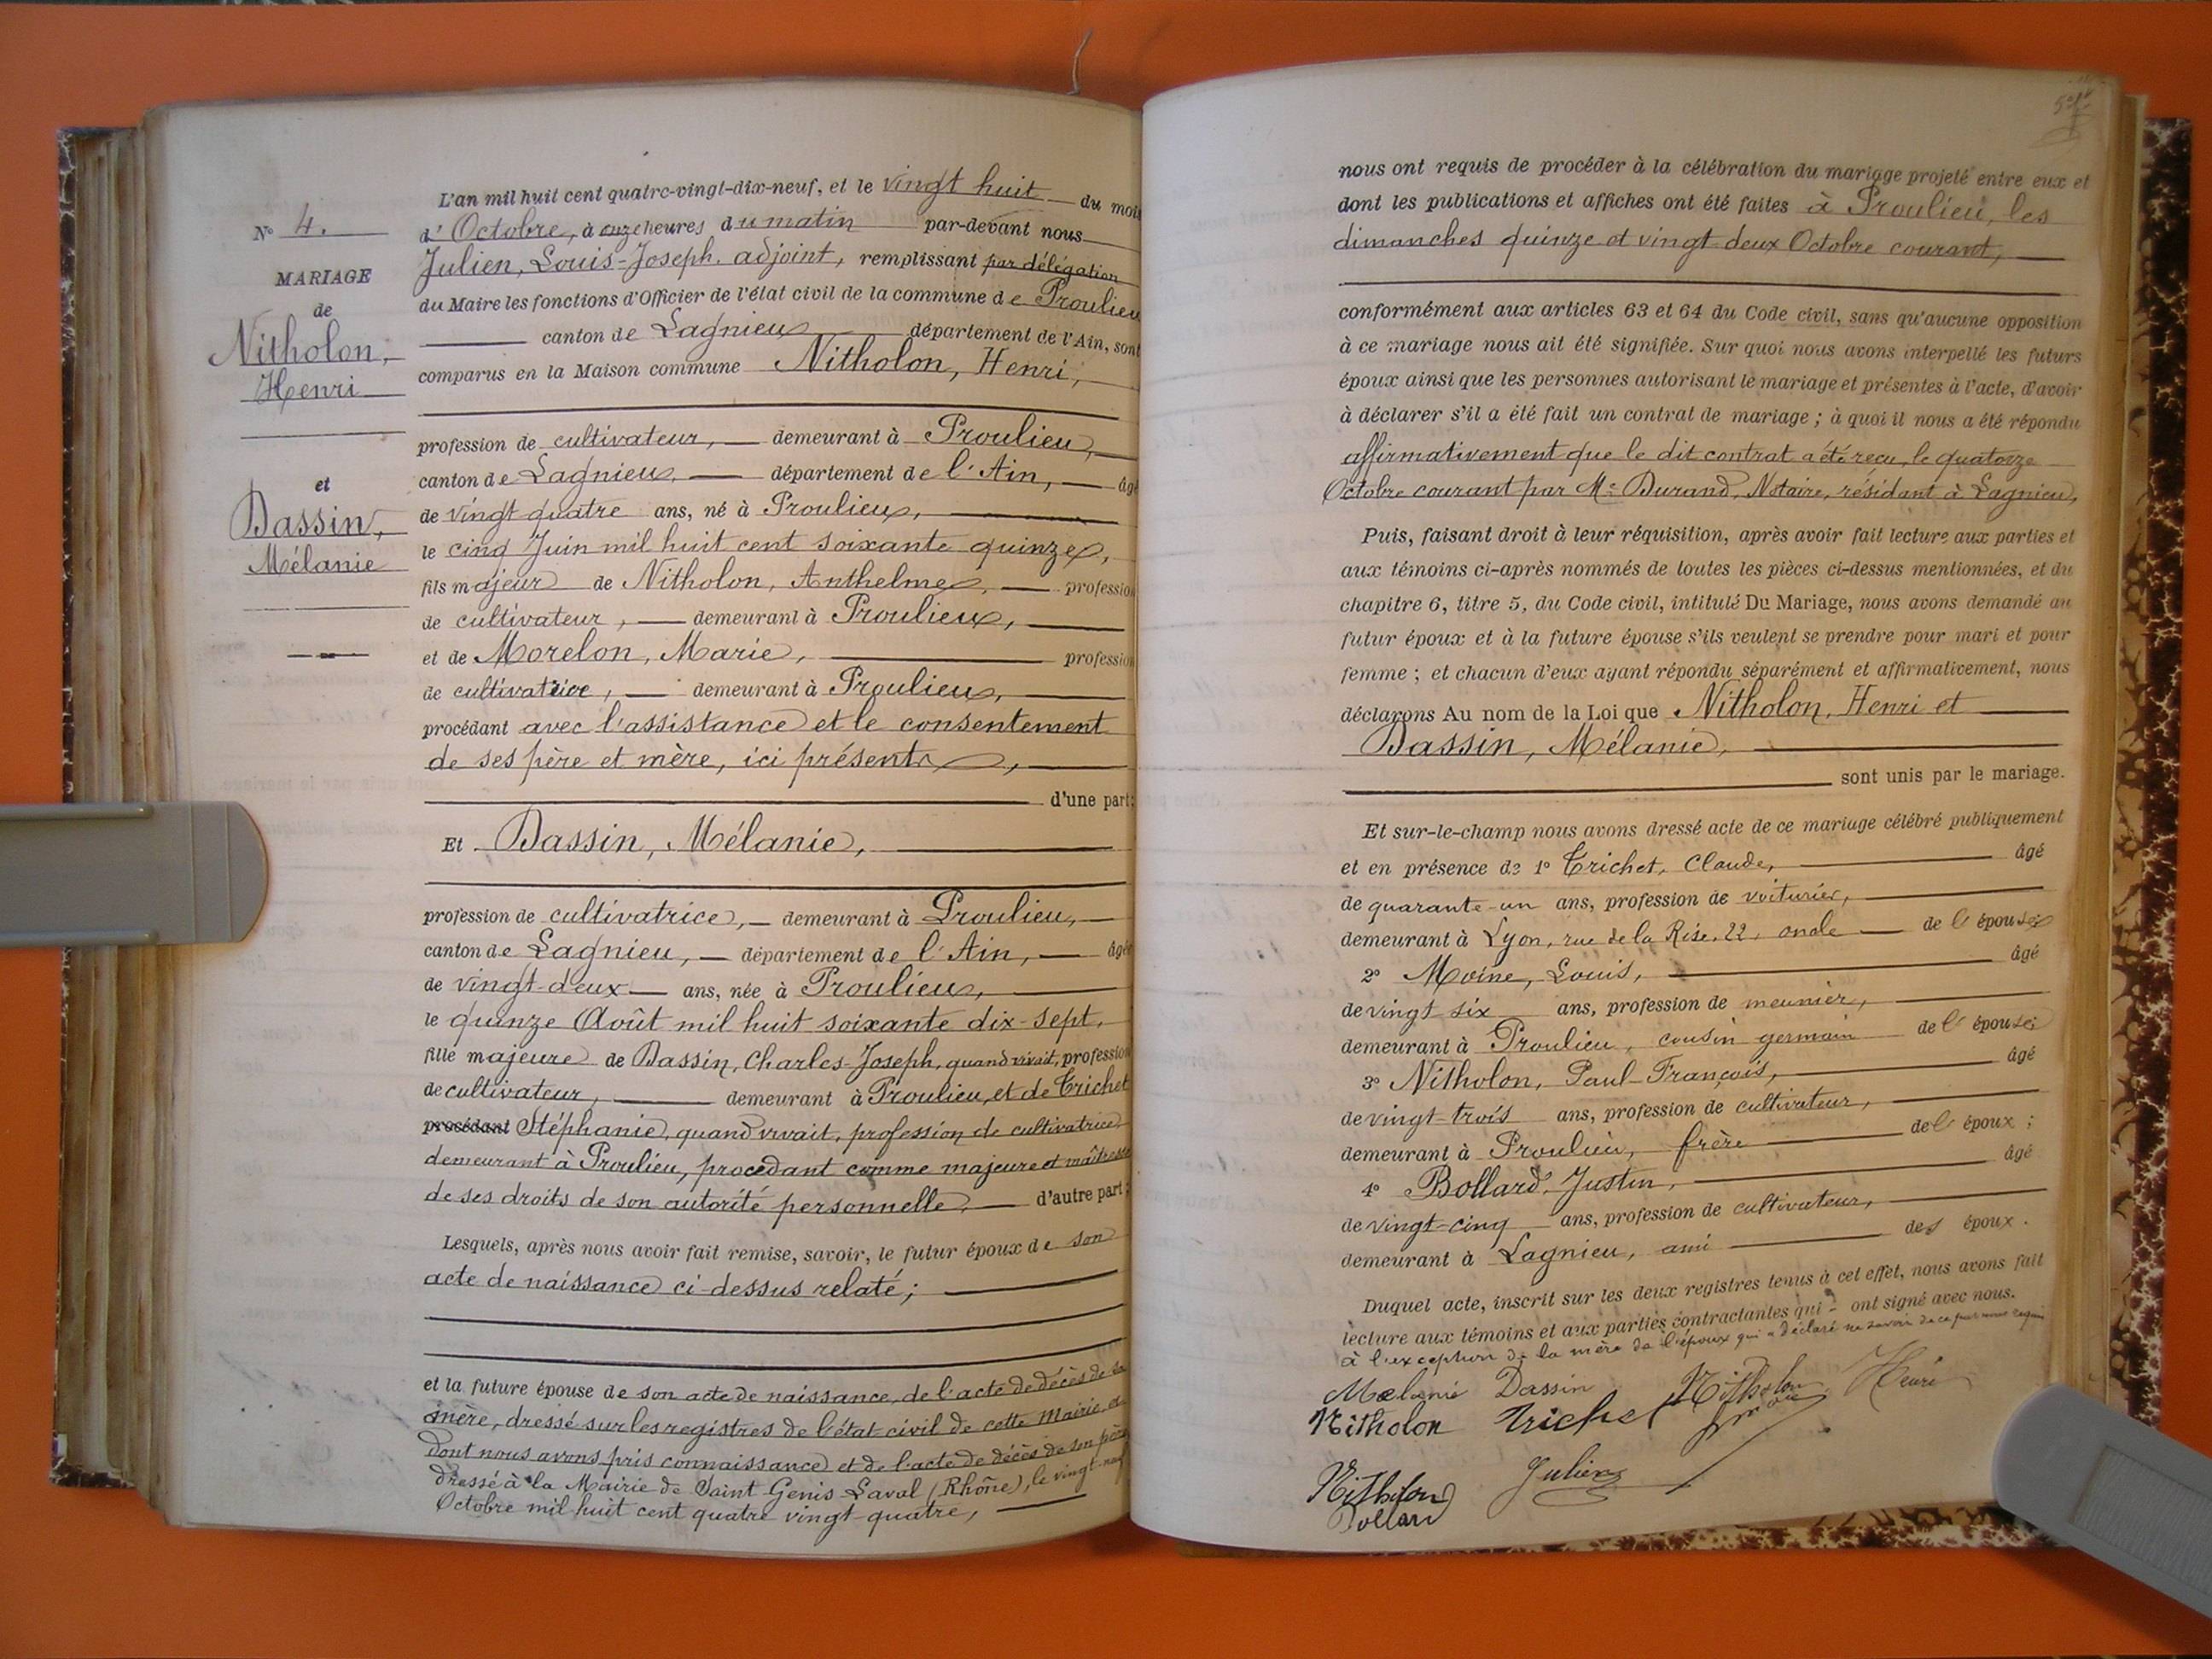 N° 4.
MARIAGE
de
Nitholon,
Henri
et
Dassin,
Mélanie
L'an mil huit cent quatre-vingt-dix-neuf, et le vingt huit du mois
d'Octobre, à onze heures du matin par-devant nous
Julien, Louis-Joseph, adjoint, remplissant par délégation
du Maire les fonctions d'Officier de l'état civil de la commune de Proulieu
canton de Lagnieu département de l'Ain, sont
comparus en la Maison commune Nitholon, Henri,
profession de cultivateur, demeurant à Proulieu,
canton de Lagnieu, département de l'Ain, âgé
de vingt quatre ans, né à Proulieu,
le cinq Juin mil huit cent soixante quinze,
fils majeur de Nitholon, Anthelme, profession
de cultivateur, demeurant à Proulieu,
et de Morelon, Marie, profession
de cultivatrice, demeurant à Proulieu,
procédant avec l'assistance et le consentement
de ses père et mère, ici présents,
d'une part;
Et Dassin, Mélanie,
profession de cultivatrice, demeurant à Proulieu,
canton de Lagnieu, département de l'Ain, âgée
de vingt-deux ans, née à Proulieu,
le quinze Août mil huit soixante dix-sept,
fille majeure de Dassin, Charles-Joseph, quand vivait, profession
de cultivateur, demeurant à Proulieu, et de Trichet
procédant Stéphanie, quand vivait, profession de cultivatrice
demeurant à Proulieu, procédant comme majeure et maîtresse
de ses droits de son autorité personnelle, d'autre part;
Lesquels, après nous avoir fait remise, savoir, le futur époux de son
acte de naissance ci-dessus relaté;
et la future épouse de son acte de naissance, de l'acte de décès de sa
mère, dressé sur les registres de l'état-civil de cette Mairie et
dont nous avons pris connaissance et de l'acte de décès de son père
dressé à la Mairie de Saint Genis Laval (Rhône), le vingt-neuf
Octobre mil huit cent quatre vingt-quatre,
nous ont requis de procéder à la célébration du mariage projeté entre eux et
dont les publications et affiches ont été faites à Proulieu, les
dimanches quinze et vingt-deux Octobre courant,
conformément aux articles 63 et 64 du Code civil, sans qu'aucune opposition
à ce mariage nous ait été signifiée. Sur quoi nous avons interpellé les futurs
époux ainsi que les personnes autorisant le mariage et présentes à l'acte, d'avoir
à déclarer s'il a été fait un contrat de mariage; à quoi il nous a été répondu
affirmativement que le dit contrat a été reçu, le quatorze
Octobre courant par Me Durand, Notaire, résidant à Lagnieu,
Puis, faisant droit à leur réquisition, après avoir fait lecture aux parties et
aux témoins ci-après nommés de toutes les pièces ci-dessus mentionnées, et du
chapitre 6, titre 5, du Code civil, intitulé Du Mariage, nous avons demandé au
futur époux et à la future épouse s'ils veulent se prendre pour mari et pour
femme; et chacun d'eux ayant répondu séparément et affirmativement, nous
déclarons Au nom de la Loi que Nitholon, Henri et
Dassin, Mélanie,
sont unis par le mariage.
Et sur-le-champ nous avons dressé acte de ce mariage célébré publiquement
et en présence de 1° Trichet, Claude, âgé
de quarante-un ans, profession de voiturier,
demeurant à Lyon, rue de la Rize, 22, oncle de l'épouse
2° Moine, Louis, âgé
de vingt six ans, profession de meunier,
demeurant à Proulieu, cousin germain de l'épouse
3° Nitholon, Paul-François, âgé
de vingt-trois ans, profession de cultivateur,
demeurant à Proulieu, frère de l'époux;
4° Bollard, Justin, âgé
de vingt-cinq ans, profession de cultivateur,
demeurant à Lagnieu, ami des époux.
Duquel acte, inscrit sur les deux registres tenus à cet effet, nous avons fait
lecture aux témoins et aux parties contractantes qui ont signé avec nous.
à l'exception de la mère de l'époux qui a déclaré ne savoir de ce par nous requis
Mélanie Dassin Nitholon Henri
Nitholon Trichet Moine
Nitholon Julien
Bollard